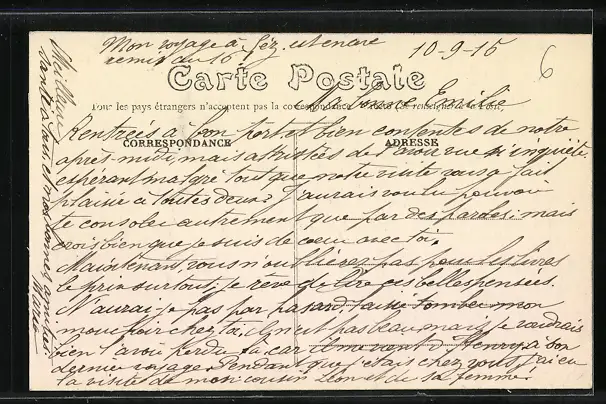 Mon voyage à Géz. est encore
remis du 16
10-9-15
6
Carte Postale
Pour les pays étrangers n'acceptent pas la correspondance
Ma bonne Emilie
CORRESPONDANCE
ADRESSE
Rentrées à bon port. et bien contentes de notre
après-midi, mais attristées de t'avoir vue si inquiète.
espérant malgré tout que notre visite vous a fait
plaisir à toutes deux. J'aurais voulu pouvoir
te consoler autrement que par des paroles; mais
crois bien que je suis de cœur avec toi.
Maintenant vous n'oublierez pas pour les livres
le prix surtout; je rêve de lire ces belles pensées.
N'aurai-je pas par hasard laissé tomber mon
mouchoir chez toi, il n'est pas beau mais je voudrais
bien l'avoir perdu là car il me vient d'Henry à son
dernier voyage. Pendant que j'étais chez vous j'ai eu
la visite de mon cousin Léon et de sa femme.
Meilleure
santé à tous et nos bonnes amitiés
Marie